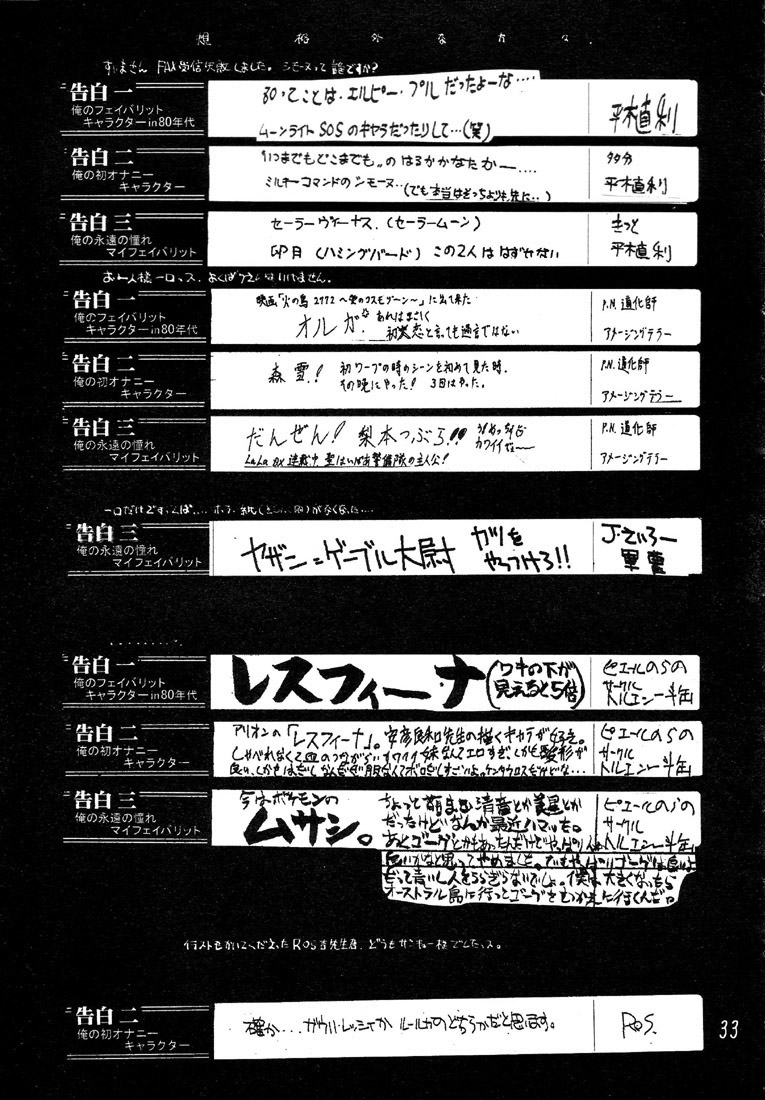 想格外な方々.
すいません FAX受信失敗しました。シモーヌって誰ですか?
告白一
俺のフェイバリット
キャラクターin80年代
80ってことは、エルピー・プルだったよーな‥‥
ムーンライトSOSのキャラだったりして…(笑)
平木直利
告白二
俺の初オナニー
キャラクター
"いつまでもどこまでも"のはるかかなたか―‥‥
ミルキーコマンドのシモーヌ…(でも本当はどっちよりも先に‥)
多分
平木直利
告白三
俺の永遠の憧れ
マイフェイバリット
セーラーヴィーナス.(セーラームーン)
卯月(ハミングバード)この2人ははずせない
きっと
平木直利
お一人様一口っス。
告白一
俺のフェイバリット
キャラクターin80年代
映画「火の鳥2772〜愛のコスモゾーン〜」に出て来た
オルガ。あれはまさしく
初恋と言っても過言ではない
P.N.道化師
アメージングテラー
告白二
俺の初オナニー
キャラクター
森雪!
初ワープの時のシーンを初めて見た時.
その晩にやった!3回はやった。
P.N.道化師
アメージングテラー
告白三
俺の永遠の憧れ
マイフェイバリット
だんぜん!梨本つぶら!!
カワイイぜ〜
LaLa DX連載中 聖はいぱあ警備隊の主人公!
P.N.道化師
アメージングテラー
告白三
俺の永遠の憧れ
マイフェイバリット
ヤザン=ゲーブル大尉
ガリを
やっつけろ!!
J・ざいろー
軍曹
告白一
俺のフェイバリット
キャラクターin80年代
レスフィーナ
(ワキの下が
見えると5倍)
ピエールのらの
サークル
トルエン一斗缶
告白二
俺の初オナニー
キャラクター
アリオンの「レスフィーナ」。安彦良和先生の描くキャラが好き。
しゃべれなくて血のつながってない妹なんてエロすぎ、しかも髪形が
ピエールのらの
サークル
トルエン一斗缶
告白三
俺の永遠の憧れ
マイフェイバリット
今はポケモンの
ムサシ。
ちょっと前まで清音とか美星とか
だったけどなんか最近ハマった。
あとゴーグとかもあったんだけどやっぱり
思ってやめました。でもやっぱりゴーグは良いよ
だって青いし人をうらぎらないでしょ。僕は大きくなったら
オーストラル島に行ってゴーグをむかえに行くんだ。
ピエールのらの
サークル
トルエン一斗缶
イラストもかいてくださったROS吉先生店、どうもサンキュー様でしたっス。
告白二
俺の初オナニー
キャラクター
確か…ガウ・ハ・レッシィか ルールカのどちらかだと思います。
RoS.
33